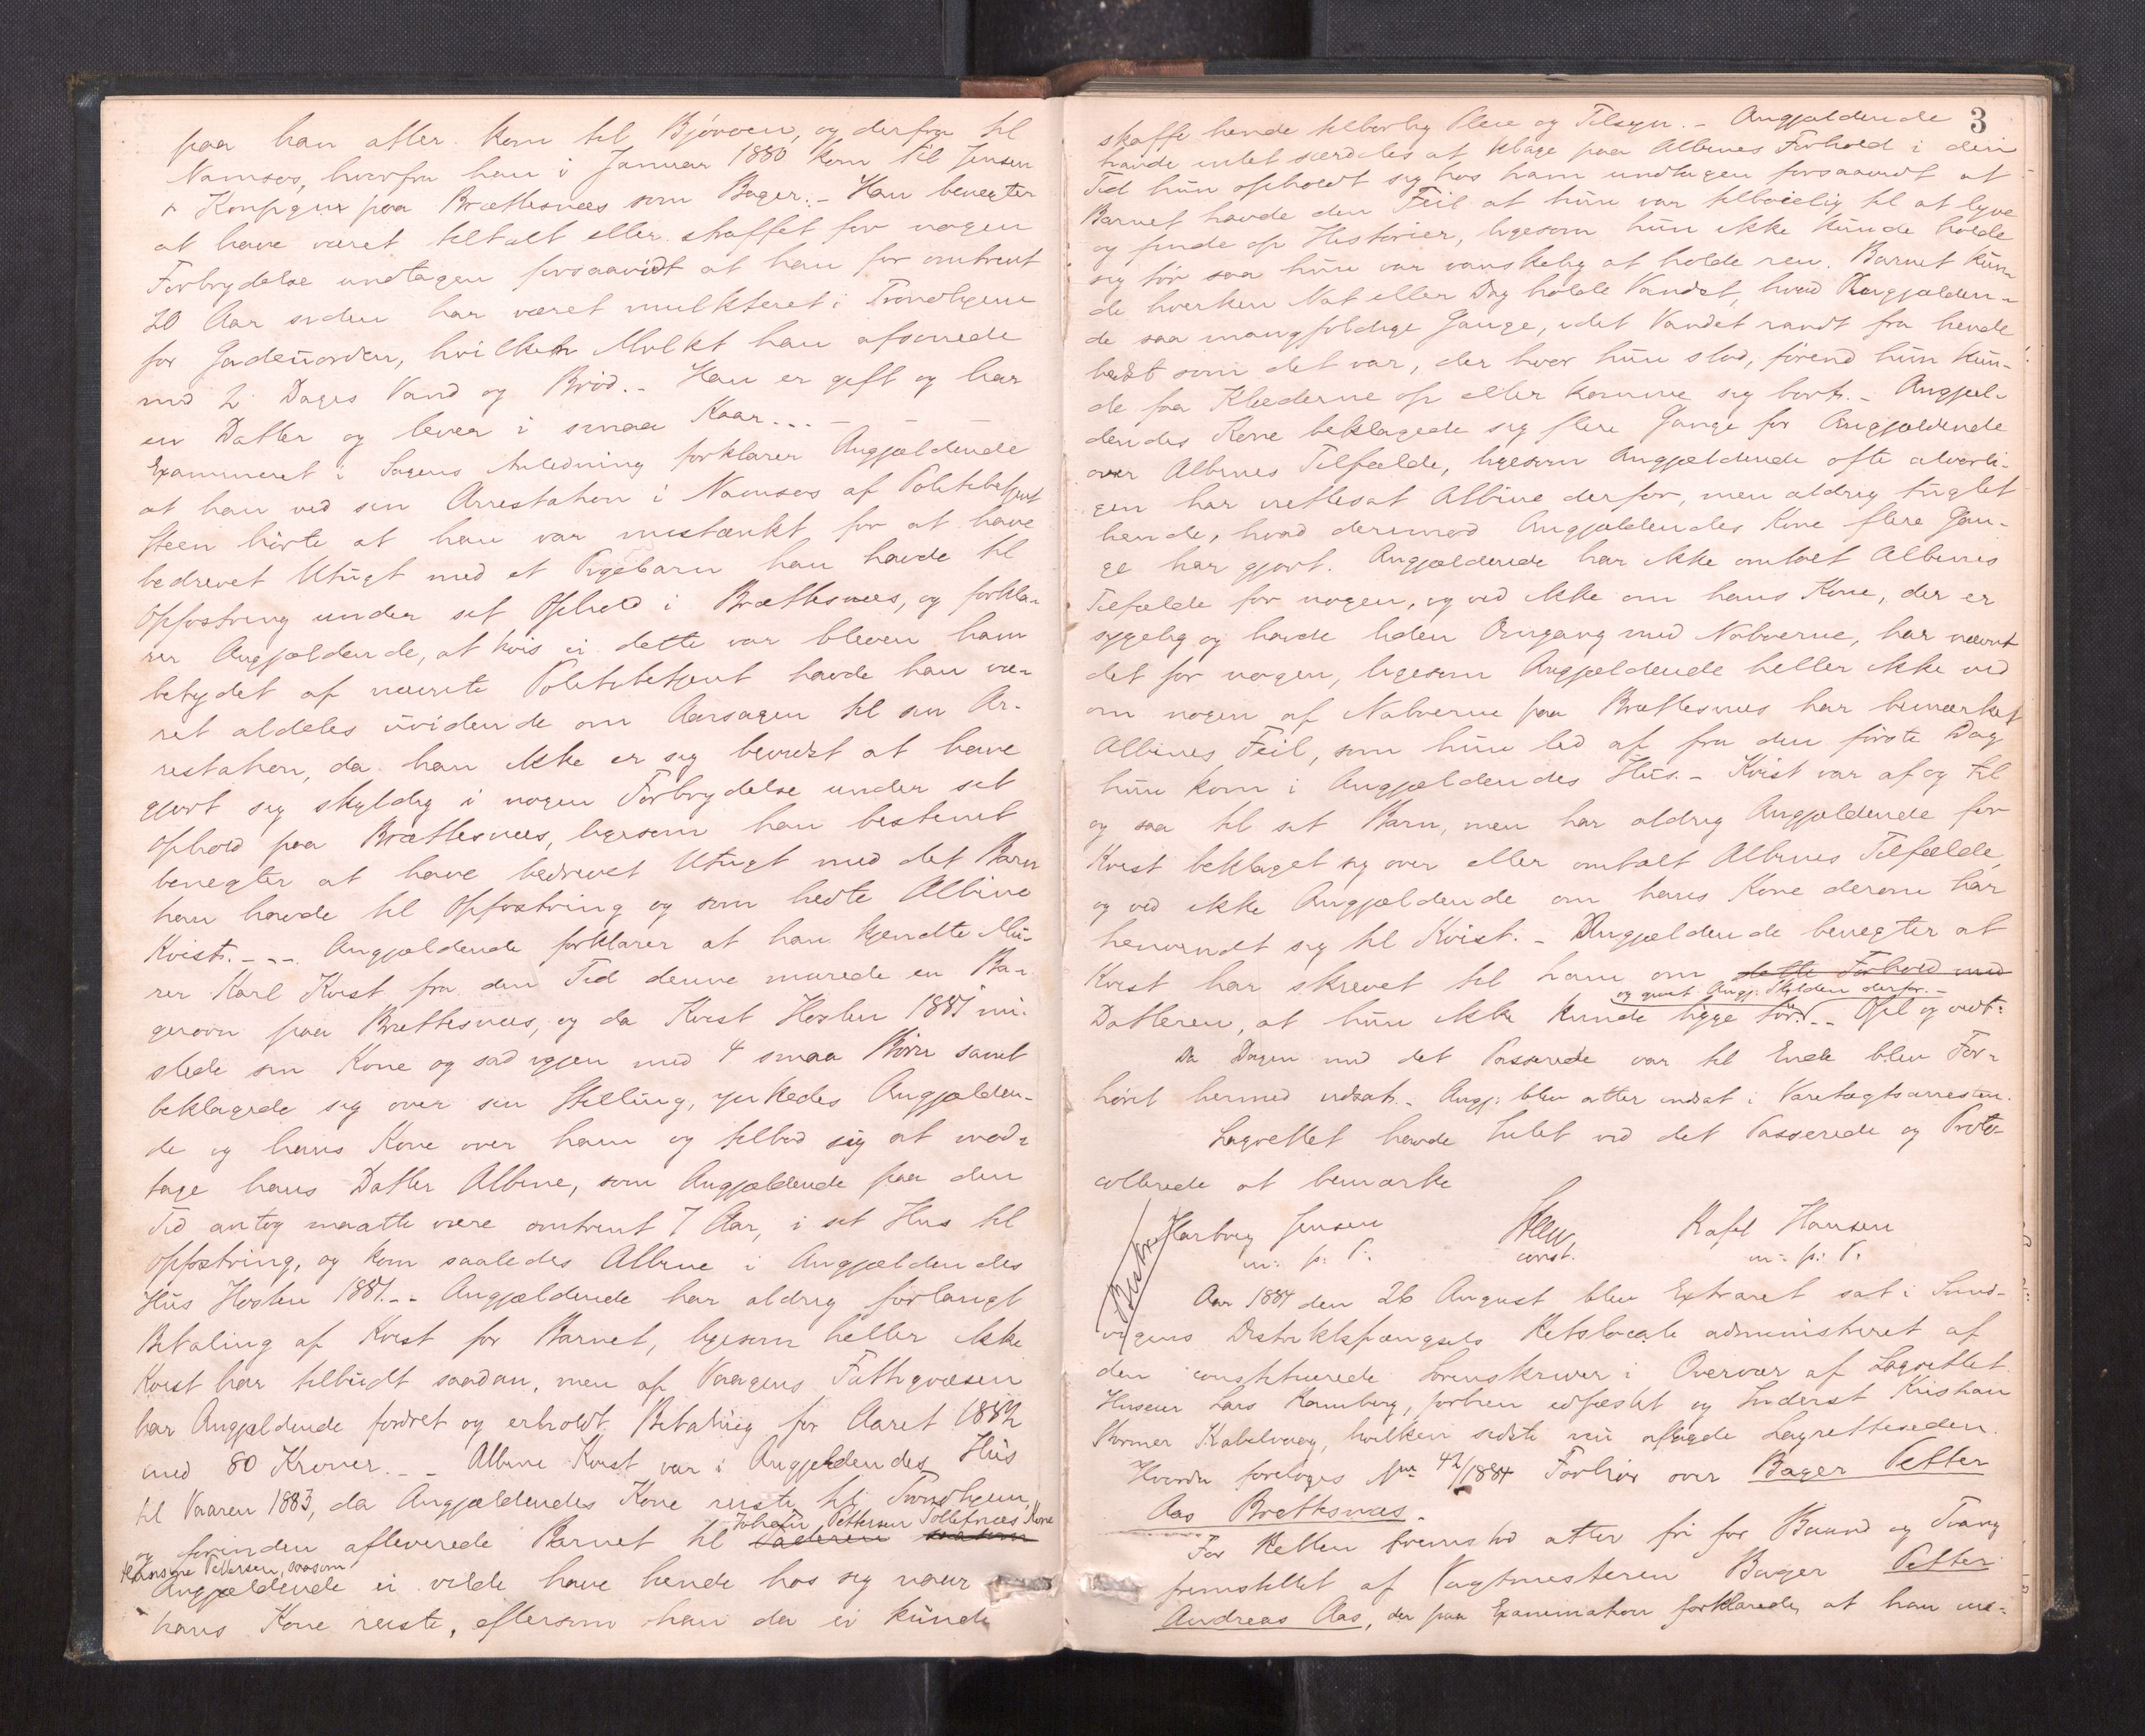 paa han atter kom til Bjørøen, og derfra til
Namsos, hvorfra han i Januar 1880 kom til Jensen
& Konpgni paa Brættesnæs som Bager. - Han benegter
at have været tiltalt eller straffet for nogen
Forbrydelse undtagen forsaavidt at han for omtrent
20 Aar siden har været mulkteret i Trondhjem
for Gadeuorden, hvilken Mulkt han afsonede
med 2 Dages Vand og Brød. - Han er gift og har
en Datter og lever i smaa Kaar. . . -
Examineret i Sagens Anledning forklarer Angjældende
at han ved sin Arrestation i Namsos af Politibetjent
Steen hørte at han var mistænkt for at have
bedrevet Utugt med et Pigebarn han havde til
Opfostring under sit Ophold i Brættesnæs, og forkla-
rer Angjældende, at hvis ei dette var bleven ham
betydet af nævnte Politibetjent havde han væ-
ret aldeles uvidende om Aarsagen til sin Ar-
restation, da han ikke er sig bevidst at have
gjort sig skyldig i nogen Forbrydelse under sit
Ophold paa Brættesnæs, ligesom han bestemt
benegter at have bedrevet Utugt med det Barn
han havde til Opfostring og som hedte Albine
Kvist. - - - Angjældende forklarer at han kjendte Mu-
rer Karl Kvist fra den Tid denne murede en Ba-
gerovn paa Brettesnæs, og da Kvist Høsten 1881 mi-
stede sin Kone og sad igjen med 4 smaa Børn samt
beklagede sig over sin Stilling, ynkedes Angjælden-
de og hans Kone over ham og tilbød sig at mod-
tage hans Datter Albine, som Angjældende paa den
Tid antog maatte være omtrent 7 Aar, i sit Hus til
Opfostring, og kom saaledes Albine i Angjældendes
Hus Høsten 1881. - - Angjældende har aldrig forlangt
Betaling af Kvist for Barnet, ligesom heller ikke
Kvist har tilbudt saadan, men af Vaagens Fattigvæsen
har Angjældende fordret og erholdt Betaling for Aaret 1882
med 80 Kroner. - - Albine Kvist var i Angjældendes Hus
til Vaaren 1883, da Angjældendes Kone reiste til Trondhjem,
Johan Pettersen Tolletnæs Kone
og forinden afleverede Barnet til Faderen saasom
Hansine Pettersen, saasom
Angjældende ei vilde have hende hos sig naar
hans Kone reiste, eftersom han da ei kunde
3
skaffe hende tilbørlig Pleie og Tilsyn. - Angjældende
havde intet særdeles at klage paa Albines Forhold i den
Tid hun opholdt sig hos ham undtagen forsaavidt at
Barnet havde den Feil at hun var tilbøielig til at lyve
og finde op Historier, ligesom hun ikke kunde holde
sig tør saa hun var vanskelig at holde ren. Barnet kun-
de hverken Nat eller Dag holde Vandet, hvad Angjælden-
de saa mangfoldige Gange, idet Vandet randt fra hende
bedst som det var, der hvor hun stod, førend hun kun-
de faa Klæderne op eller komme sig bort. - Angjæl-
dendes Kone beklagede sig flere Gange for Angjældende
over Albines Tilfælde, ligesom Angjældende ofte alvorli-
gen har irettesat Albine derfor, men aldrig tugtet
hende, hvad derimod Angjældendes Kone flere Gan-
ge har gjort. Angjældende har ikke omtalt Albines
Tilfælde for nogen, og ved ikke om hans Kone, der er
sygelig og havde liden Omgang med Naboerne, har nævnt
det for nogen, ligesom Angjældende heller ikke ved
om nogen af Naboerne paa Brettesnæs har bemærket
Albines Feil, som hun led af fra den første Dag
hun kom i Angjældendes Hus. - Kvist var af og til
og saa til sit Barn, men har aldrig Angjældende for
Kvist beklaget sig over eller omtalt Albines Tilfælde,
og ved ikke Angjældende om hans Kone derom har
henvendt sig til Kvist. - Angjældende benegter at
Kvist har skrevet til ham om dette Forhold med
og givet Angj: Skylden derfor. -
Datteren, at hun ikke kunde ligge tør. - - Opl og vedt:
Da Dagen med det Passerede var til Ende blev For-
høret hermed udsat. - Angj: blev atter indsat i Varetægtsarresten.
Lagrettet havde Intet ved det Passerede og Proto-
collerede at bemærke
Hartvig Jensen Steen Rafel Hansen
m: p: P: const. m: p: P:
Aar 1884 den 26 August blev Extraret sat i Lund-
vogens Distriktsfængsels Retslocale administreret af
den constituerede Sorenskriver i Overvær af Lagrettet
Husmr Lars Ramberg, forhen edfæstet og Inderst Kristian
Stormer Kabelvaag, hvilken sidste nu aflagde Lagretteseden.
Hvorda foretoges No 42/1884 Forhør over Bager Petter
Aas Brettesnæs.
For Retten fremstod atter fri for Baand og Tvang
fremstillet af Vagtmesteren Bager Petter
Andreas Aas, der paa Examination forklarede, at han væ-